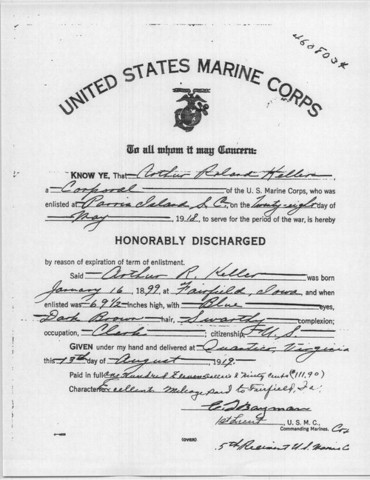 UNITED STATES MARINE CORPS
To all whom it may Concern:
KNOW YE, That Arthur Roland Keller
a Corporal of the U. S. Marine Corps, who was
enlisted at Parris Island, S.C., on the Twenty eight day of
May, 1918, to serve for the period of the war, is hereby
HONORABLY DISCHARGED
by reason of expiration of term of enlistment.
Said Arthur R. Keller was born
January 16, 1899, at Fairfield, Iowa, and when
enlisted was 69½ inches high, with Blue eyes,
Dark Brown hair, Swarthy complexion;
occupation, Clerk; citizenship, U. S.
GIVEN under my hand and delivered at Quantico, Virginia
this 13th day of August, 1919.
Paid in full One hundred Eleven & Ninety cents ($111.90)
Character Excellent. Mileage paid to Fairfield, Ia.
1st Lieut, U. S. M. C.,
Commanding Marines. Co
(OVER)
5th Regiment U.S. Marine C